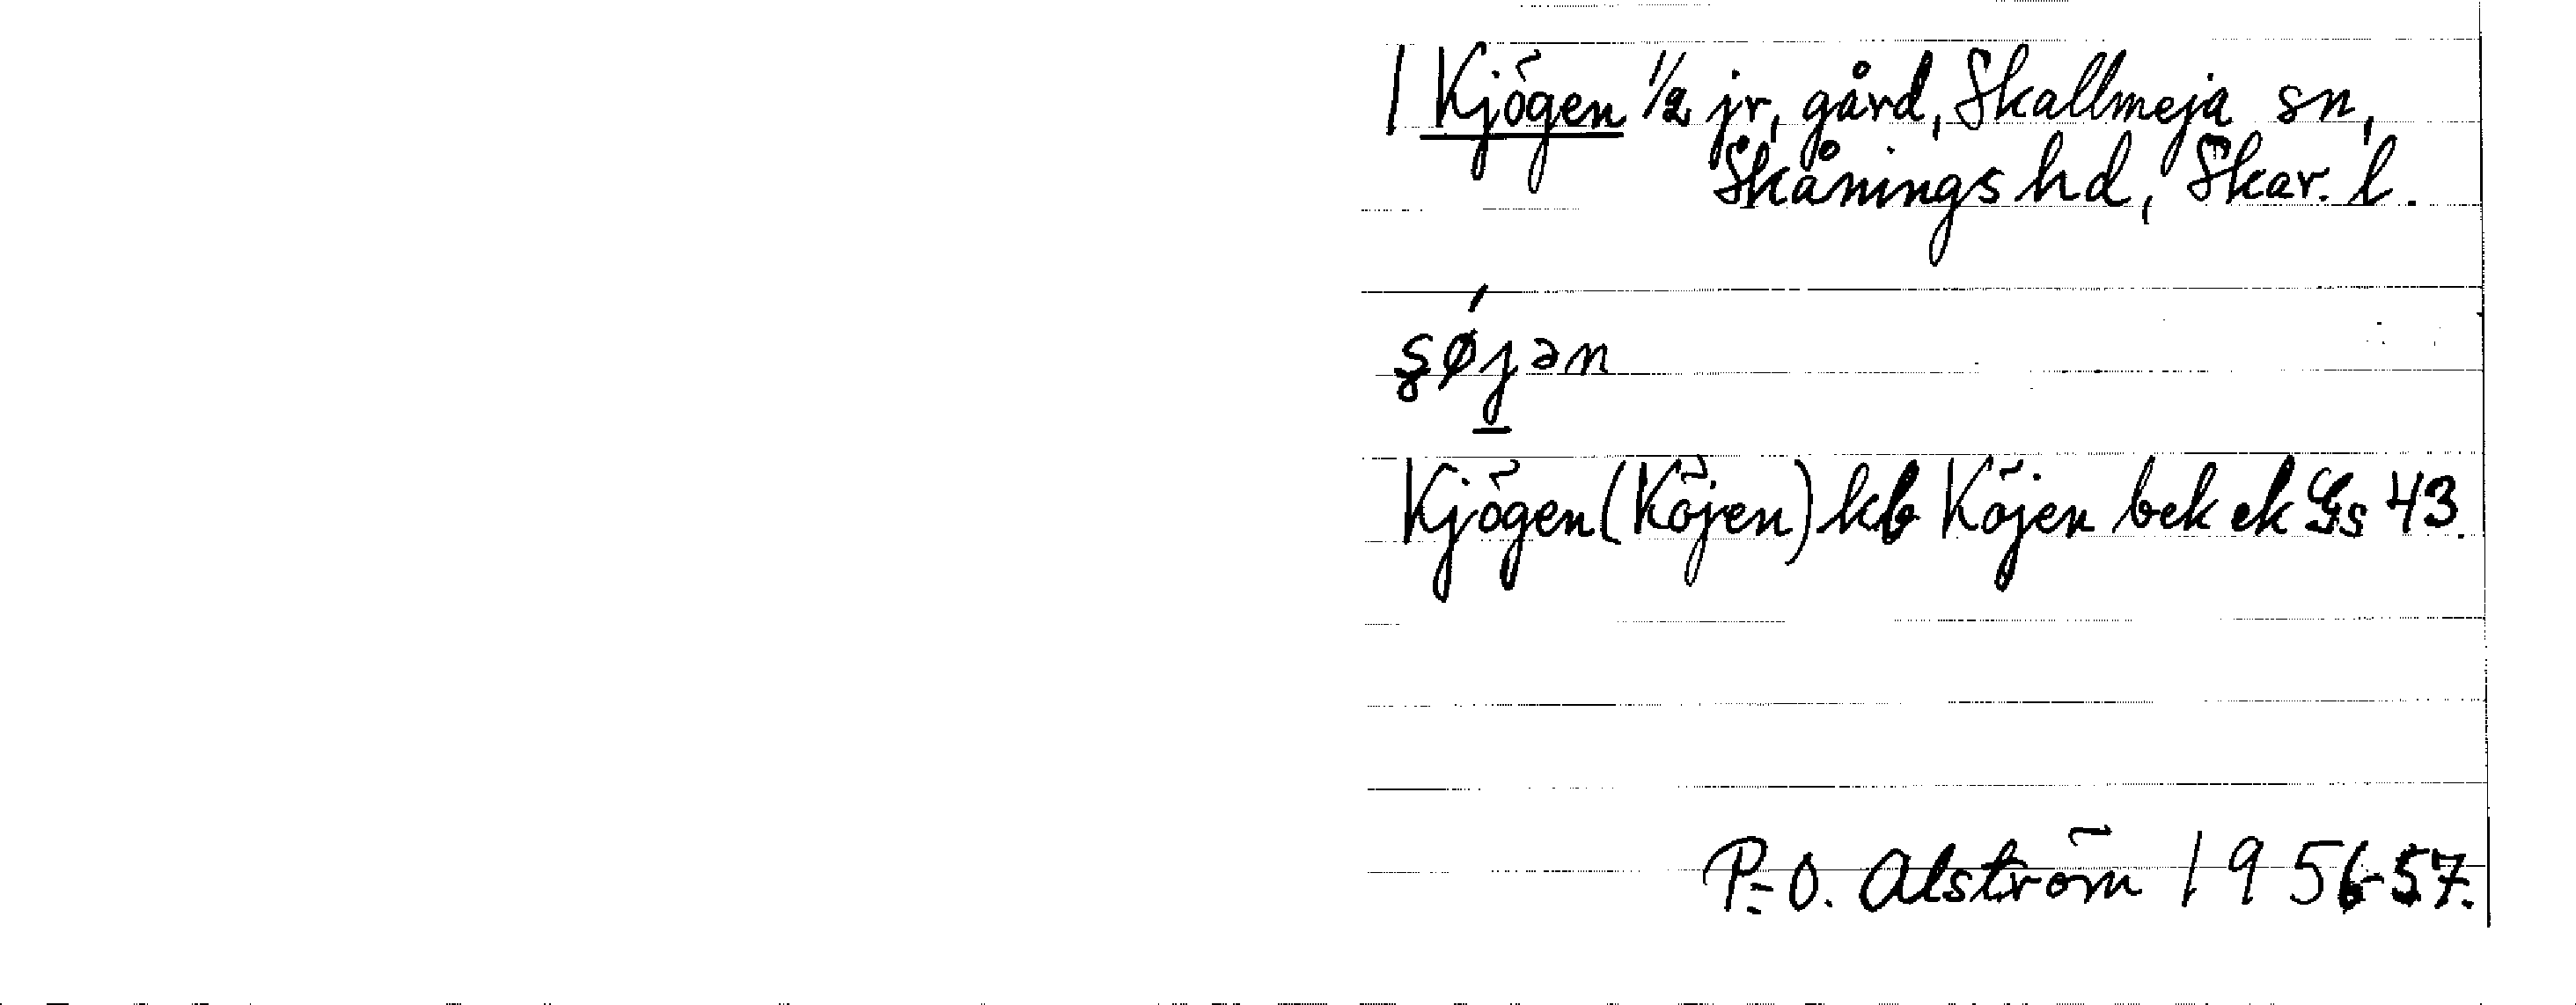 1 Kjögen 1/2 jr, gård, Skallmeja sn,
Skånings hd, Skar. l.
Kjögen (Köjen) kb Köjen bek ek Gs 43.
P.-O. Alström 1956-57.